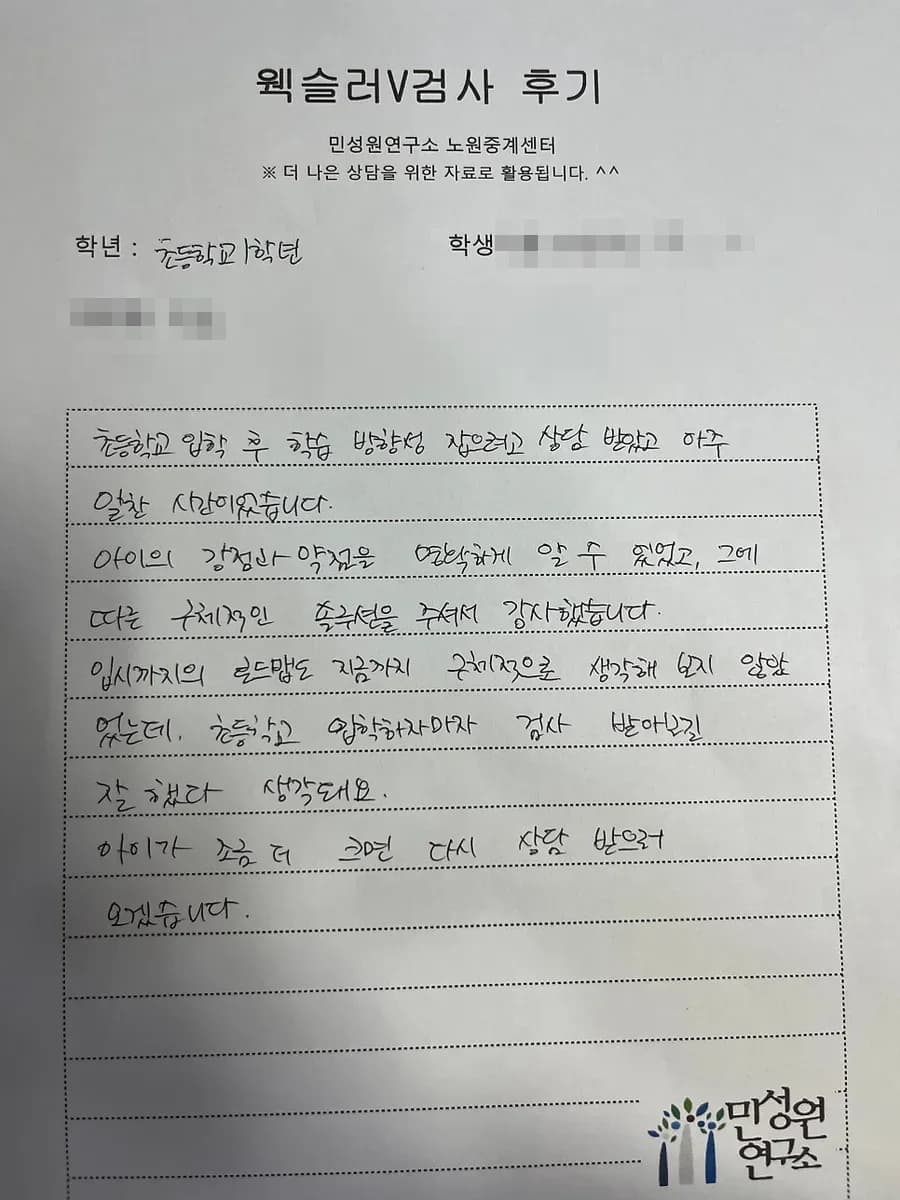 웩슬러V검사 후기
민성원연구소 노원중계센터
※ 더 나은 상담을 위한 자료로 활용됩니다. ^^
학년 : 초등학교1학년
학생
초등학교 입학 후 학습 방향성 잡으려고 상담 받았고 아주
알찬 시간이었습니다.
아이의 강점과 약점을 명확하게 알 수 있었고, 그에
따른 구체적인 솔루션을 주셔서 감사했습니다.
입시까지의 로드맵도 지금까지 구체적으로 생각해 보지 않았
었는데, 초등학교 입학하자마자 검사 받아보길
잘 했다 생각돼요.
아이가 조금 더 크면 다시 상담 받으러
오겠습니다.
민성원
연구소